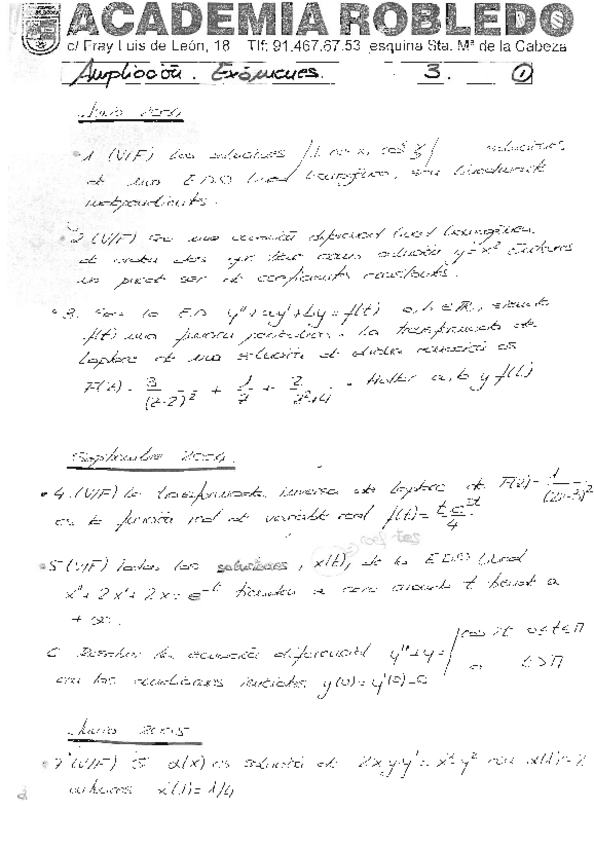 ACADEMIA ROBLEDO
c/ Fray Luis de León, 18 Tlf: 91.467.67.53 esquina Sta. Mª de la Cabeza
Ampliación. Exámenes. 3. 1
Junio 2004
1 (V/F) Las soluciones
de una EDO lineal homogénea, son linealmente
independientes.
2 (V/F) En una ecuación diferencial lineal homogénea
de orden dos que tiene como solución y=x² entonces
no puede ser de coeficientes constantes.
3. Sea la ED y''+ay'+by=f(t) a,b∈ℝ, siendo
f(t) una función . La transformada de
Laplace de una solución de dicha ecuación es
F(z)= 3/(z-2)² + 1/z + 2/z²+4 . Hallar a, b y f(t)
Septiembre 2004.
4. (V/F) La transformada inversa de Laplace de F(z)=
es la función real de variable real f(t)=
coef. ctes
5 (V/F) Todas las soluciones, x(t), de la EDO lineal
x''+2x'+2x=e^-t tienden a cero cuando t tiende a
+∞.
6 Resolver la ecuación diferencial y''+y= cos 2t 0≤t≤π
0 t>π
con las condiciones iniciales y(0)=y'(0)=0
Junio 2005
7 (V/F) Si α(x) es solución de 2xyy'=x²-y² con
entonces α'(1)=1/4